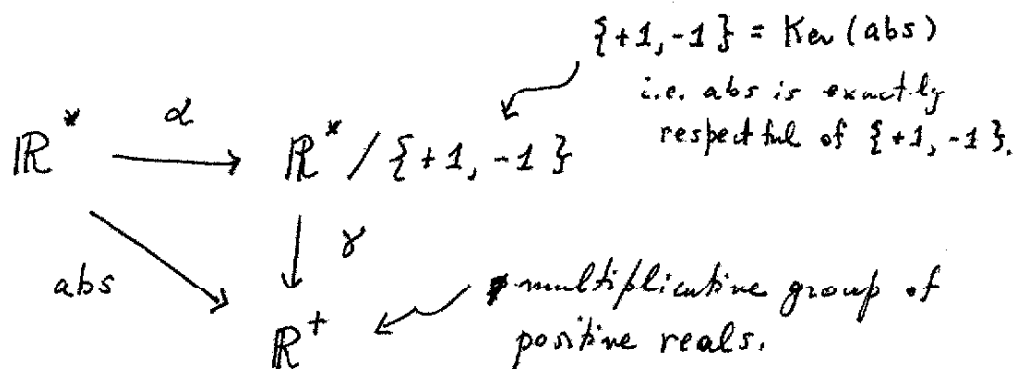 {+1, -1} = Ker (abs)
i.e. abs is exactly
respectful of {+1, -1}.
ℝ* α ℝ* / {+1, -1}
abs γ
ℝ+
multiplicative group of
positive reals.